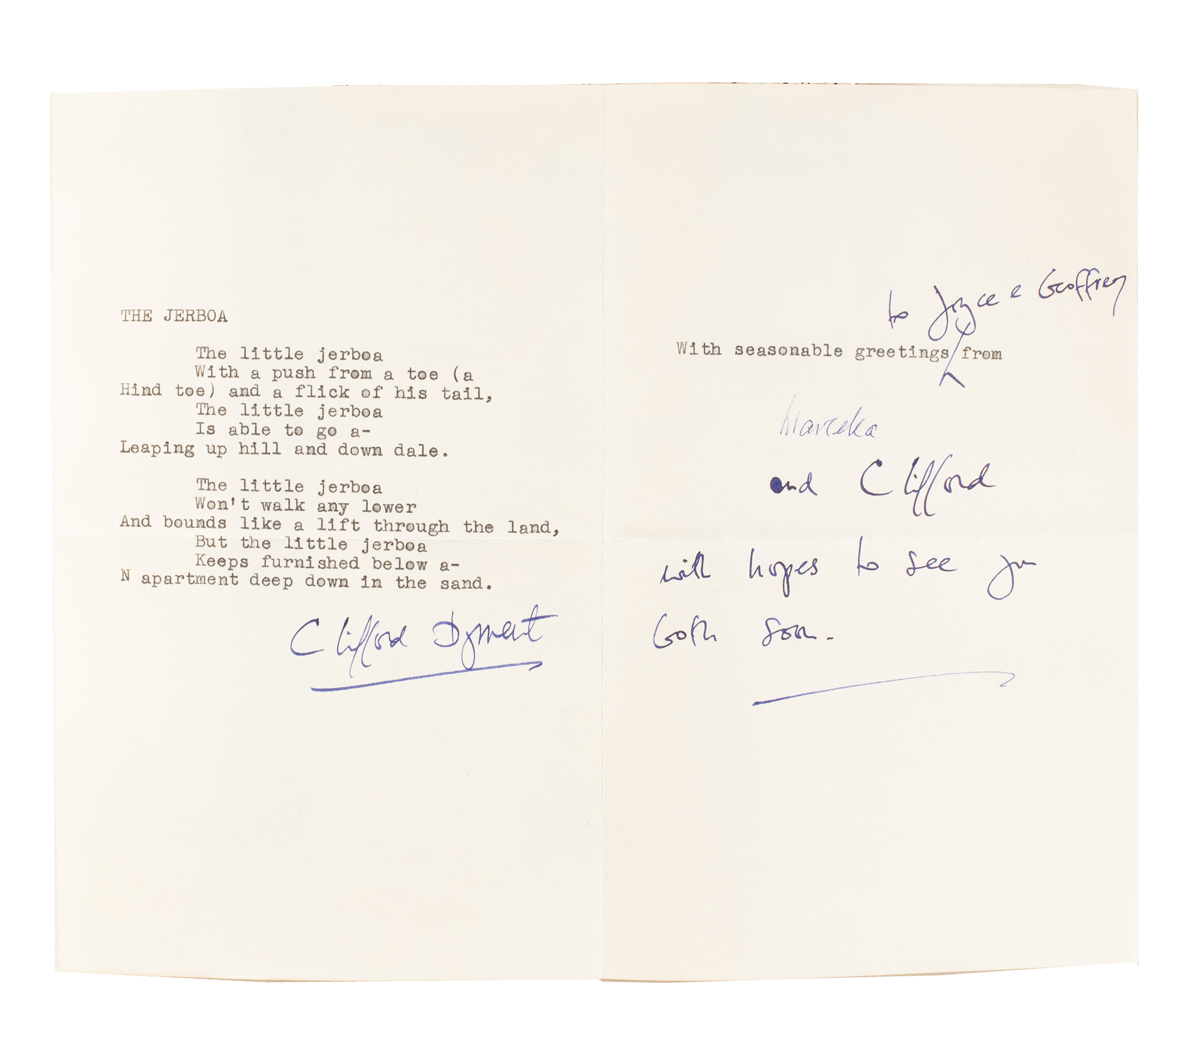 THE JERBOA
The little jerboa
With a push from a toe (a
Hind toe) and a flick of his tail,
The little jerboa
Is able to go a-
Leaping up hill and down dale.
The little jerboa
Won't walk any lower
And bounds like a lift through the land,
But the little jerboa
Keeps furnished below a-
N apartment deep down in the sand.
Clifford Dyment
to Joyce & Geoffrey
With seasonable greetings from
and Clifford
with hopes to see you
both soon.